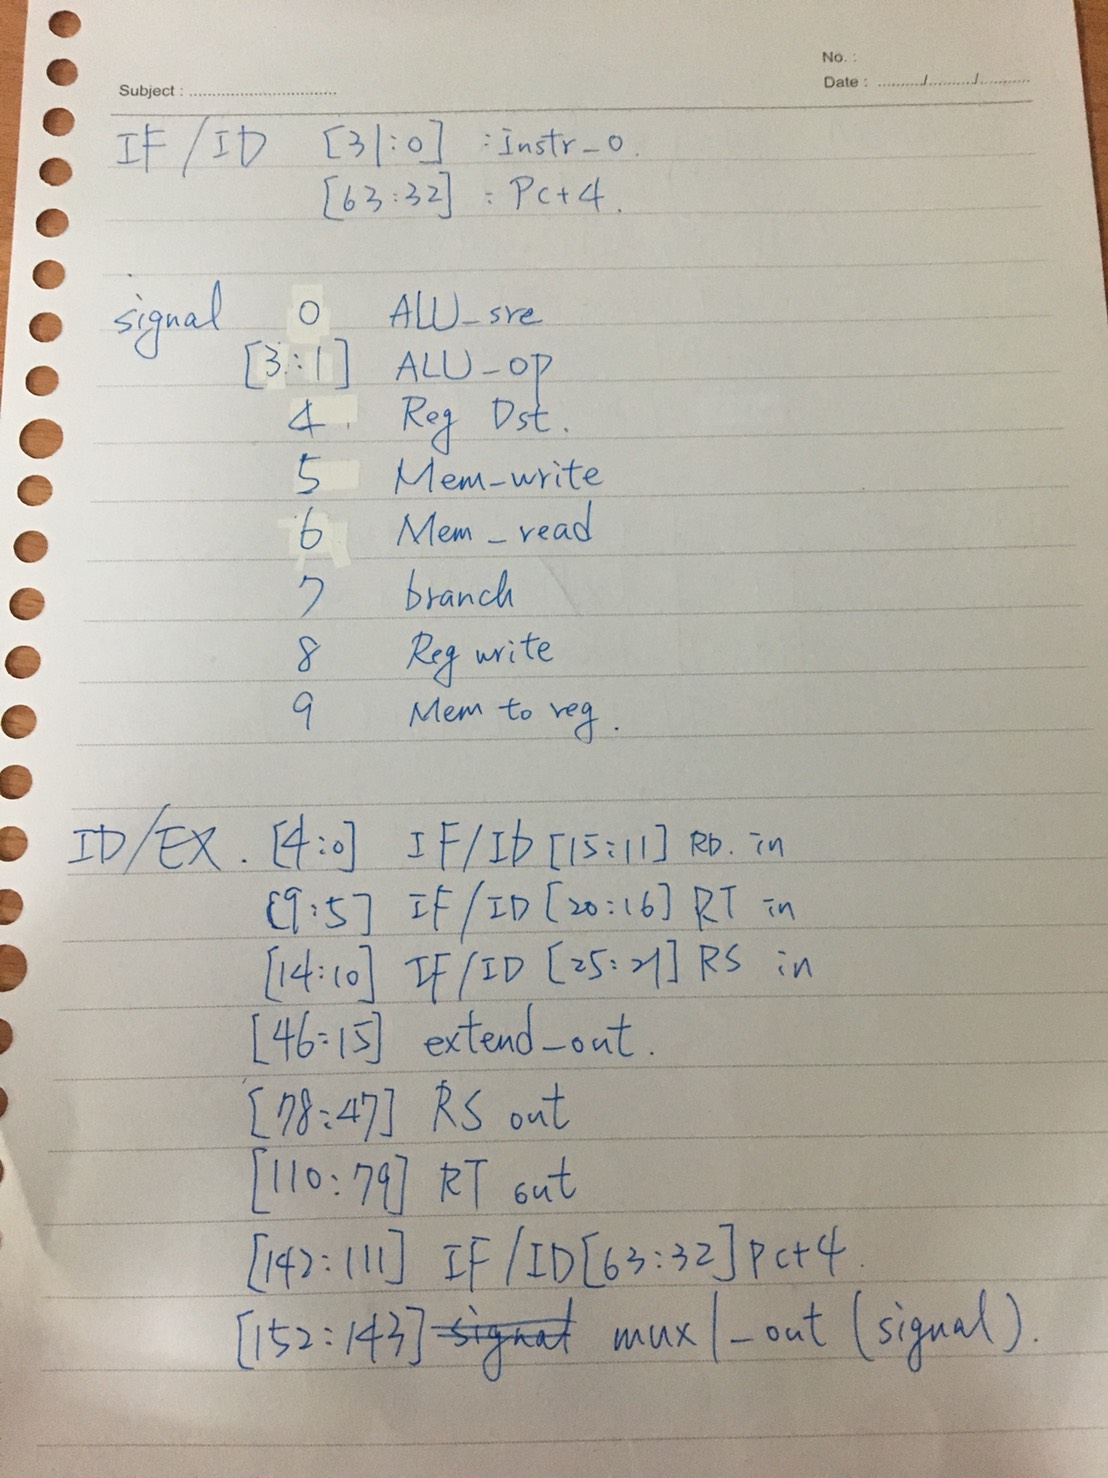 No. :
Subject :
Date : / /
IF/ID [31:0] : Instr_o.
[63:32] : Pc+4.
signal 0 ALU_src
[3:1] ALU_op
4 Reg Dst.
5 Mem_write
6 Mem_read
7 branch
8 Reg write
9 Mem to reg.
ID/EX. [4:0] IF/ID [15:11] RD. in
[9:5] IF/ID [20:16] RT in
[14:10] IF/ID [25:21] RS in
[46:15] extend_out.
[78:47] RS out
[110:79] RT out
[142:111] IF/ID[63:32] pc+4.
[152:143] signal mux1_out (signal).